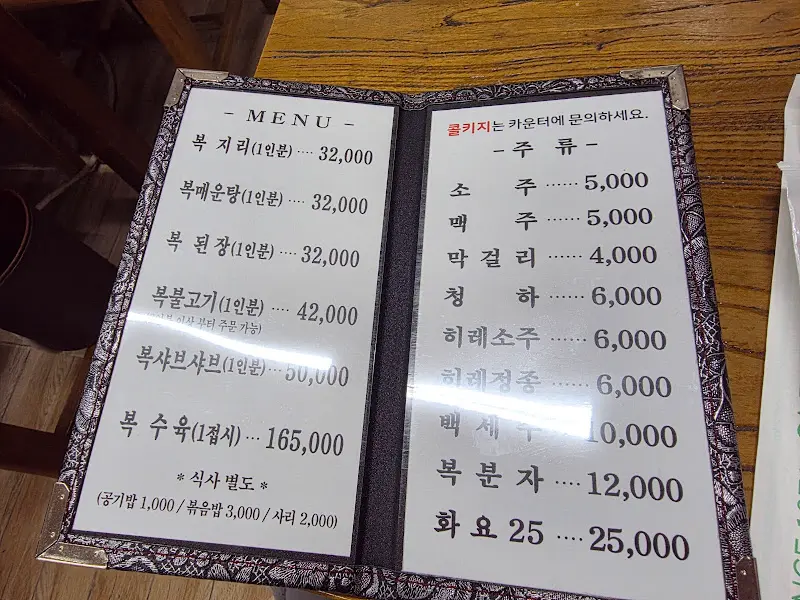 - MENU -
복 지 리(1인분) ···· 32,000
복매운탕(1인분) ···· 32,000
복 된 장(1인분) ···· 32,000
복불고기(1인분) ···· 42,000
이상 부터 주문 가능)
복샤브샤브(1인분)··· 50,000
복 수 육(1접시) ··· 165,000
* 식사 별도 *
(공기밥 1,000 / 볶음밥 3,000 / 사리 2,000)
콜키지는 카운터에 문의하세요.
- 주 류 -
소 주 ······ 5,000
맥 주 ······ 5,000
막 걸 리 ······ 4,000
청 하 ······ 6,000
히레소주 ······ 6,000
히레정종 ······ 6,000
백 세 주 10,000
복 분 자 ···· 12,000
화 요 25 ···· 25,000